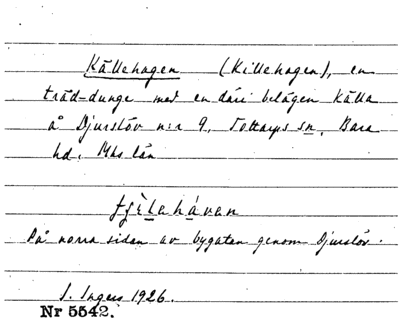 Källehagen (Killehagen), en
träd-dunge med en däri belägen källa
å Djurslöv n:r 9, Tottarps sn, Bara
hd. Mhs län
På norra sidan av bygatan genom Djurslöv.
I. Ingers 1926.
Nr 5542.